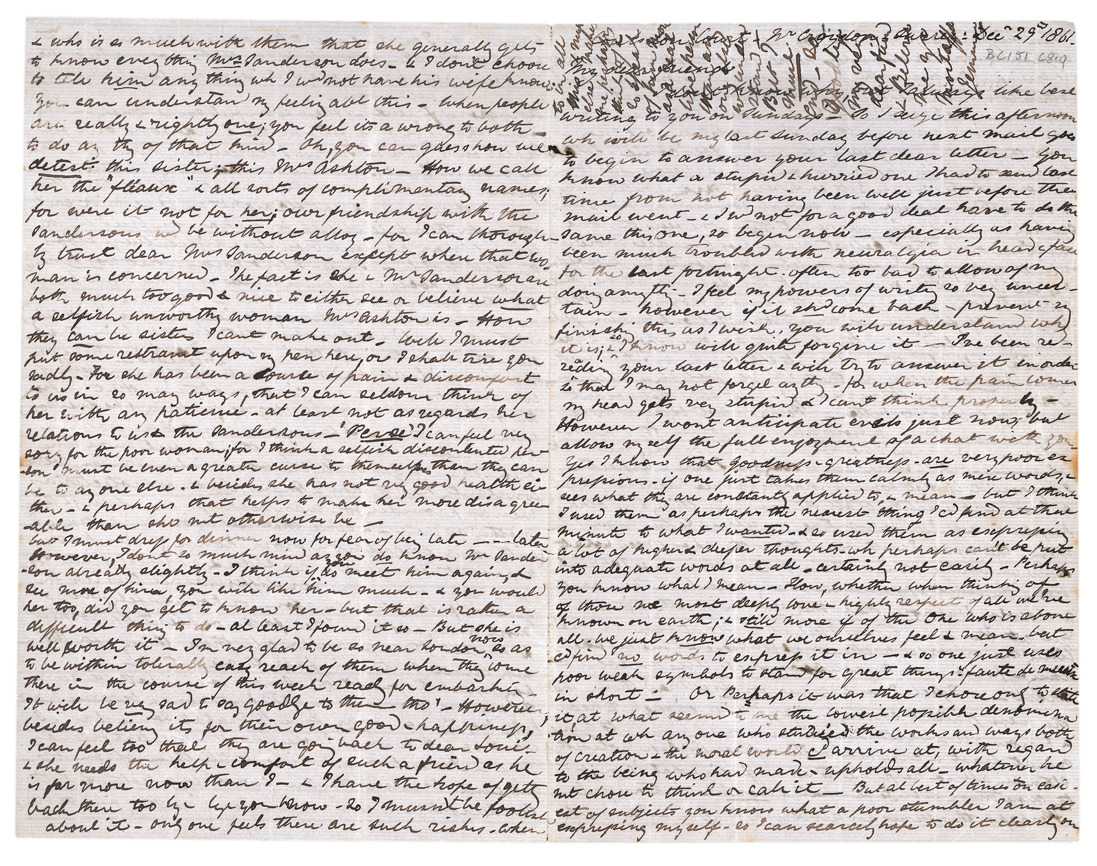 & who is so much with them that she generally gets
to know everything Mrs Sanderson does - & I don't choose
to tell him anything wh I wd not have his wife know
You can understand my feeling abt this - when people
are really & rightly one; you feel its a wrong to both
to do any thg of that kind - Oh, you can guess how we
detest this sister; this Mrs Ashton - How we call
her the & all sorts of complimentary names;
for were it not for her; our friendship with the
Sandersons wd be without alloy - for I can thorough-
ly trust dear Mrs Sanderson except where that wo-
man is concerned - The fact is she & Mr Sanderson are
both much too good & nice to either see or believe what
a selfish unworthy woman Mrs Ashton is - How
they can be sisters I cant make out - Well I must
put some restraint upon my pen here, or I shall tire you
sadly - For she has been a source of pain & discomfort
to us in so many ways, that I can seldom think of
her with any patience - at least not as regards her
relations to us & the Sandersons - 'Per se' I can feel very
sorry for the poor woman; for I think a selfish discontented per-
-son must be even a greater curse to themselves than they can
be to any one else - & besides she has not very good health ei-
ther - & perhaps that helps to make her more disagree-
-able than she mt otherwise be -
But I must dress for dinner now for fear of being late - - - later
However, I dont so much mind as you do know Mr Sander-
-son already slightly - I think if you do meet him again, &
see more of him, you will like him much - & you would
her too, did you get to know her - but that is rather a
difficult thing to do - at least I found it so - But she is
well worth it - I'm very glad to be so near London now, so as
to be within tolerably easy reach of them when they come
there in the course of this week ready for embarking -
It will be very sad to say goodbye to them - tho' - However,
besides believing it, for their own good & happiness,
I can feel too that they are going back to dear Louis -
& she needs the help & comfort of such a friend as he
is far more now than I - & I have the hope of getting
back there too bye bye you know - So I mustn't be foolish
about it - only one feels there are such risks - when
Court, Nr Croydon, Surrey: Decr 29th 1861.
BC 151 C8.9
My dear friend
I know why but I always like best
writing to you on Sundays - So I seize this afternoon
wh will be my last Sunday before next mail goes
to begin to answer your last dear letter - You
know what a stupid & hurried one I had to send last
time from not having been well just before the
mail went - & I wd not for a good deal have to do the
same this one, so begin now - especially as having
been much troubled with neuralgia in head & face
for the last fortnight - often too bad to allow of my
doing anythg - I feel my powers of writg so very uncer-
tain - however if it shd come back & prevent my
finishing this as I wish, you will understand why
it is, & I know will quite forgive it - I've been re-
ading your last letter & will try to answer it in order
so that I may not forget anythg - for when the pain comes
my head gets very stupid & I cant think properly -
However I wont anticipate evils just now, but
allow myself the full enjoyment of a chat with you
Yes I know that goodness - greatness - are very poor ex-
pressions - if one just takes them calmly as mere words, &
sees what they are constantly applied to, & mean - but I think
I used them as perhaps the nearest thing I cd find at that
minute to what I wanted - & so used them as expressing
a lot of higher & deeper thoughts - wh perhaps cant be put
into adequate words at all - certainly not easily - Perhaps
you know what I mean - How, whether when thinking of
of those we most deeply love & highly respect of all we've
known on earth; & still more if of the One who is above
all - we just know what we ourselves feel & mean - but
cd find no words to express it in - & so one just uses
poor weak symbols to stand for great things: faute de mieux
in short - Or perhaps it was that I chose only to
it at what seemed to me the lowest possible denomina
tion at wh any one who studied the works and ways both
of creation & the moral world cd arrive at, with regard
to the being who had made & upholds all - whatever he
mt chose to think or call it - But at best of times on easi-
est of subjects you know what a poor stumbler I am at
expressing myself - so I can scarcely hope to do it clearly on